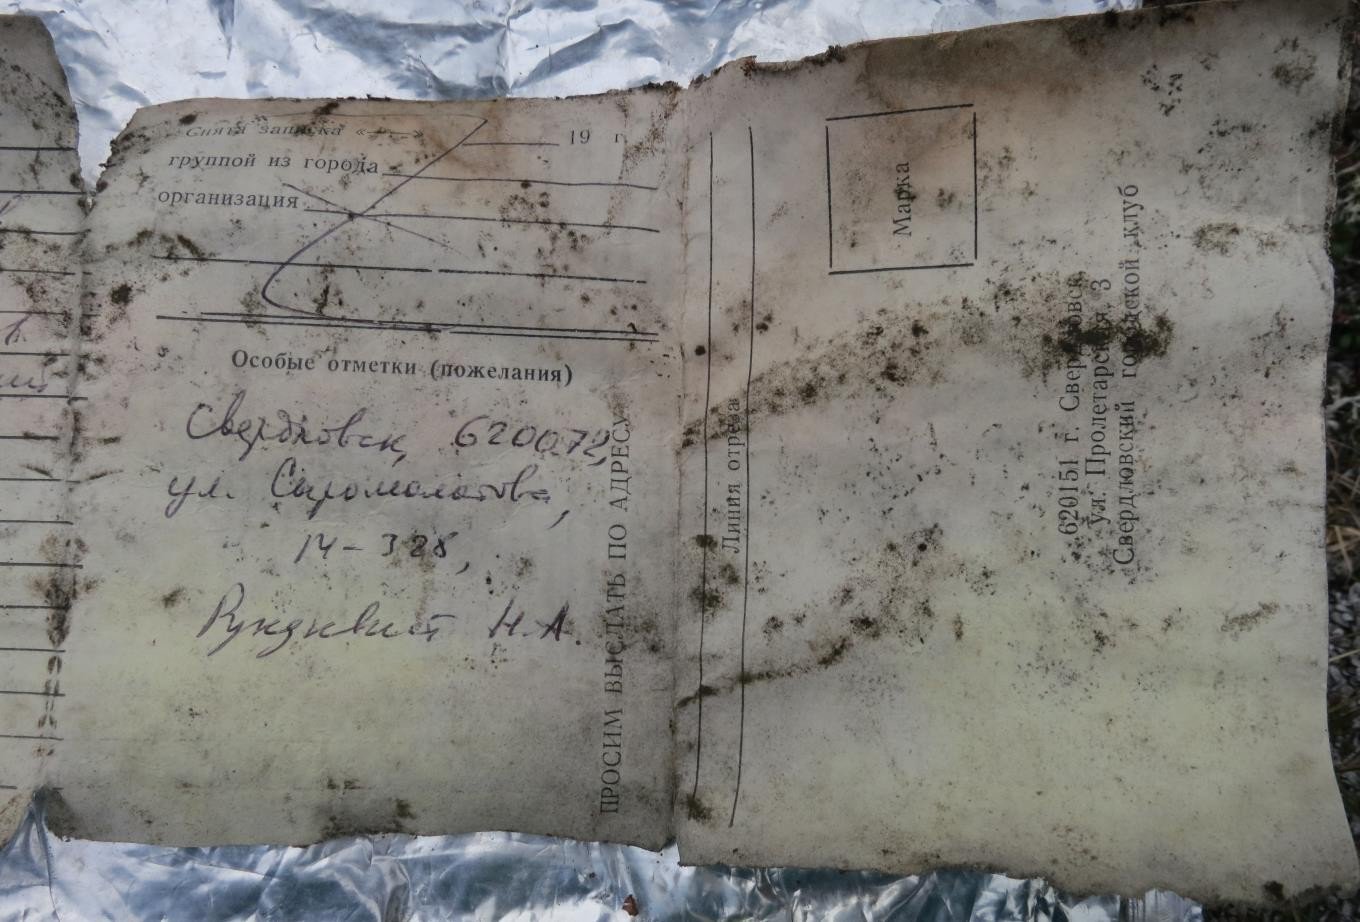 Снята записка «——» 19 г.
группой из города
организация
Особые отметки (пожелания)
Свердловск, 620072,
ул. Сыромолотова,
14-328,
Рундквист Н.А.
ПРОСИМ ВЫСЛАТЬ ПО АДРЕСУ
Линия отреза
Марка
620151 г. Свердловск
ул. Пролетарская 3
Свердловский городской клуб